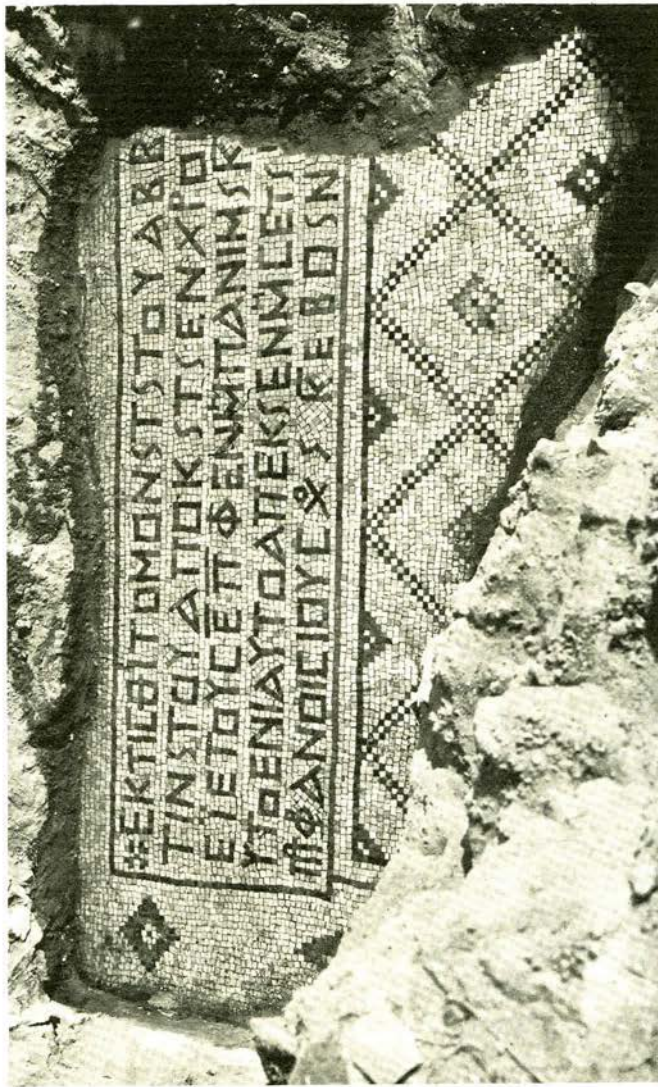 ΕΚΤΙCΘΙΤΟΜΟΝSΤSΤΟΥΑΒΒ
ΤΙΝSΤΟΥΑΠΟΚSΤSΕΝΧΡΟ
ΕΙΕΤΟΥCΕΠΦΕΝΜΠΑΝΙΜSΚ
ΥΤΟΕΝΙΑΥΤΟΑΠΕΚSΕΝΜLΕΤS
ΦΑΝΟΙCΙΟΥC S ΚΕΒΟSΝ